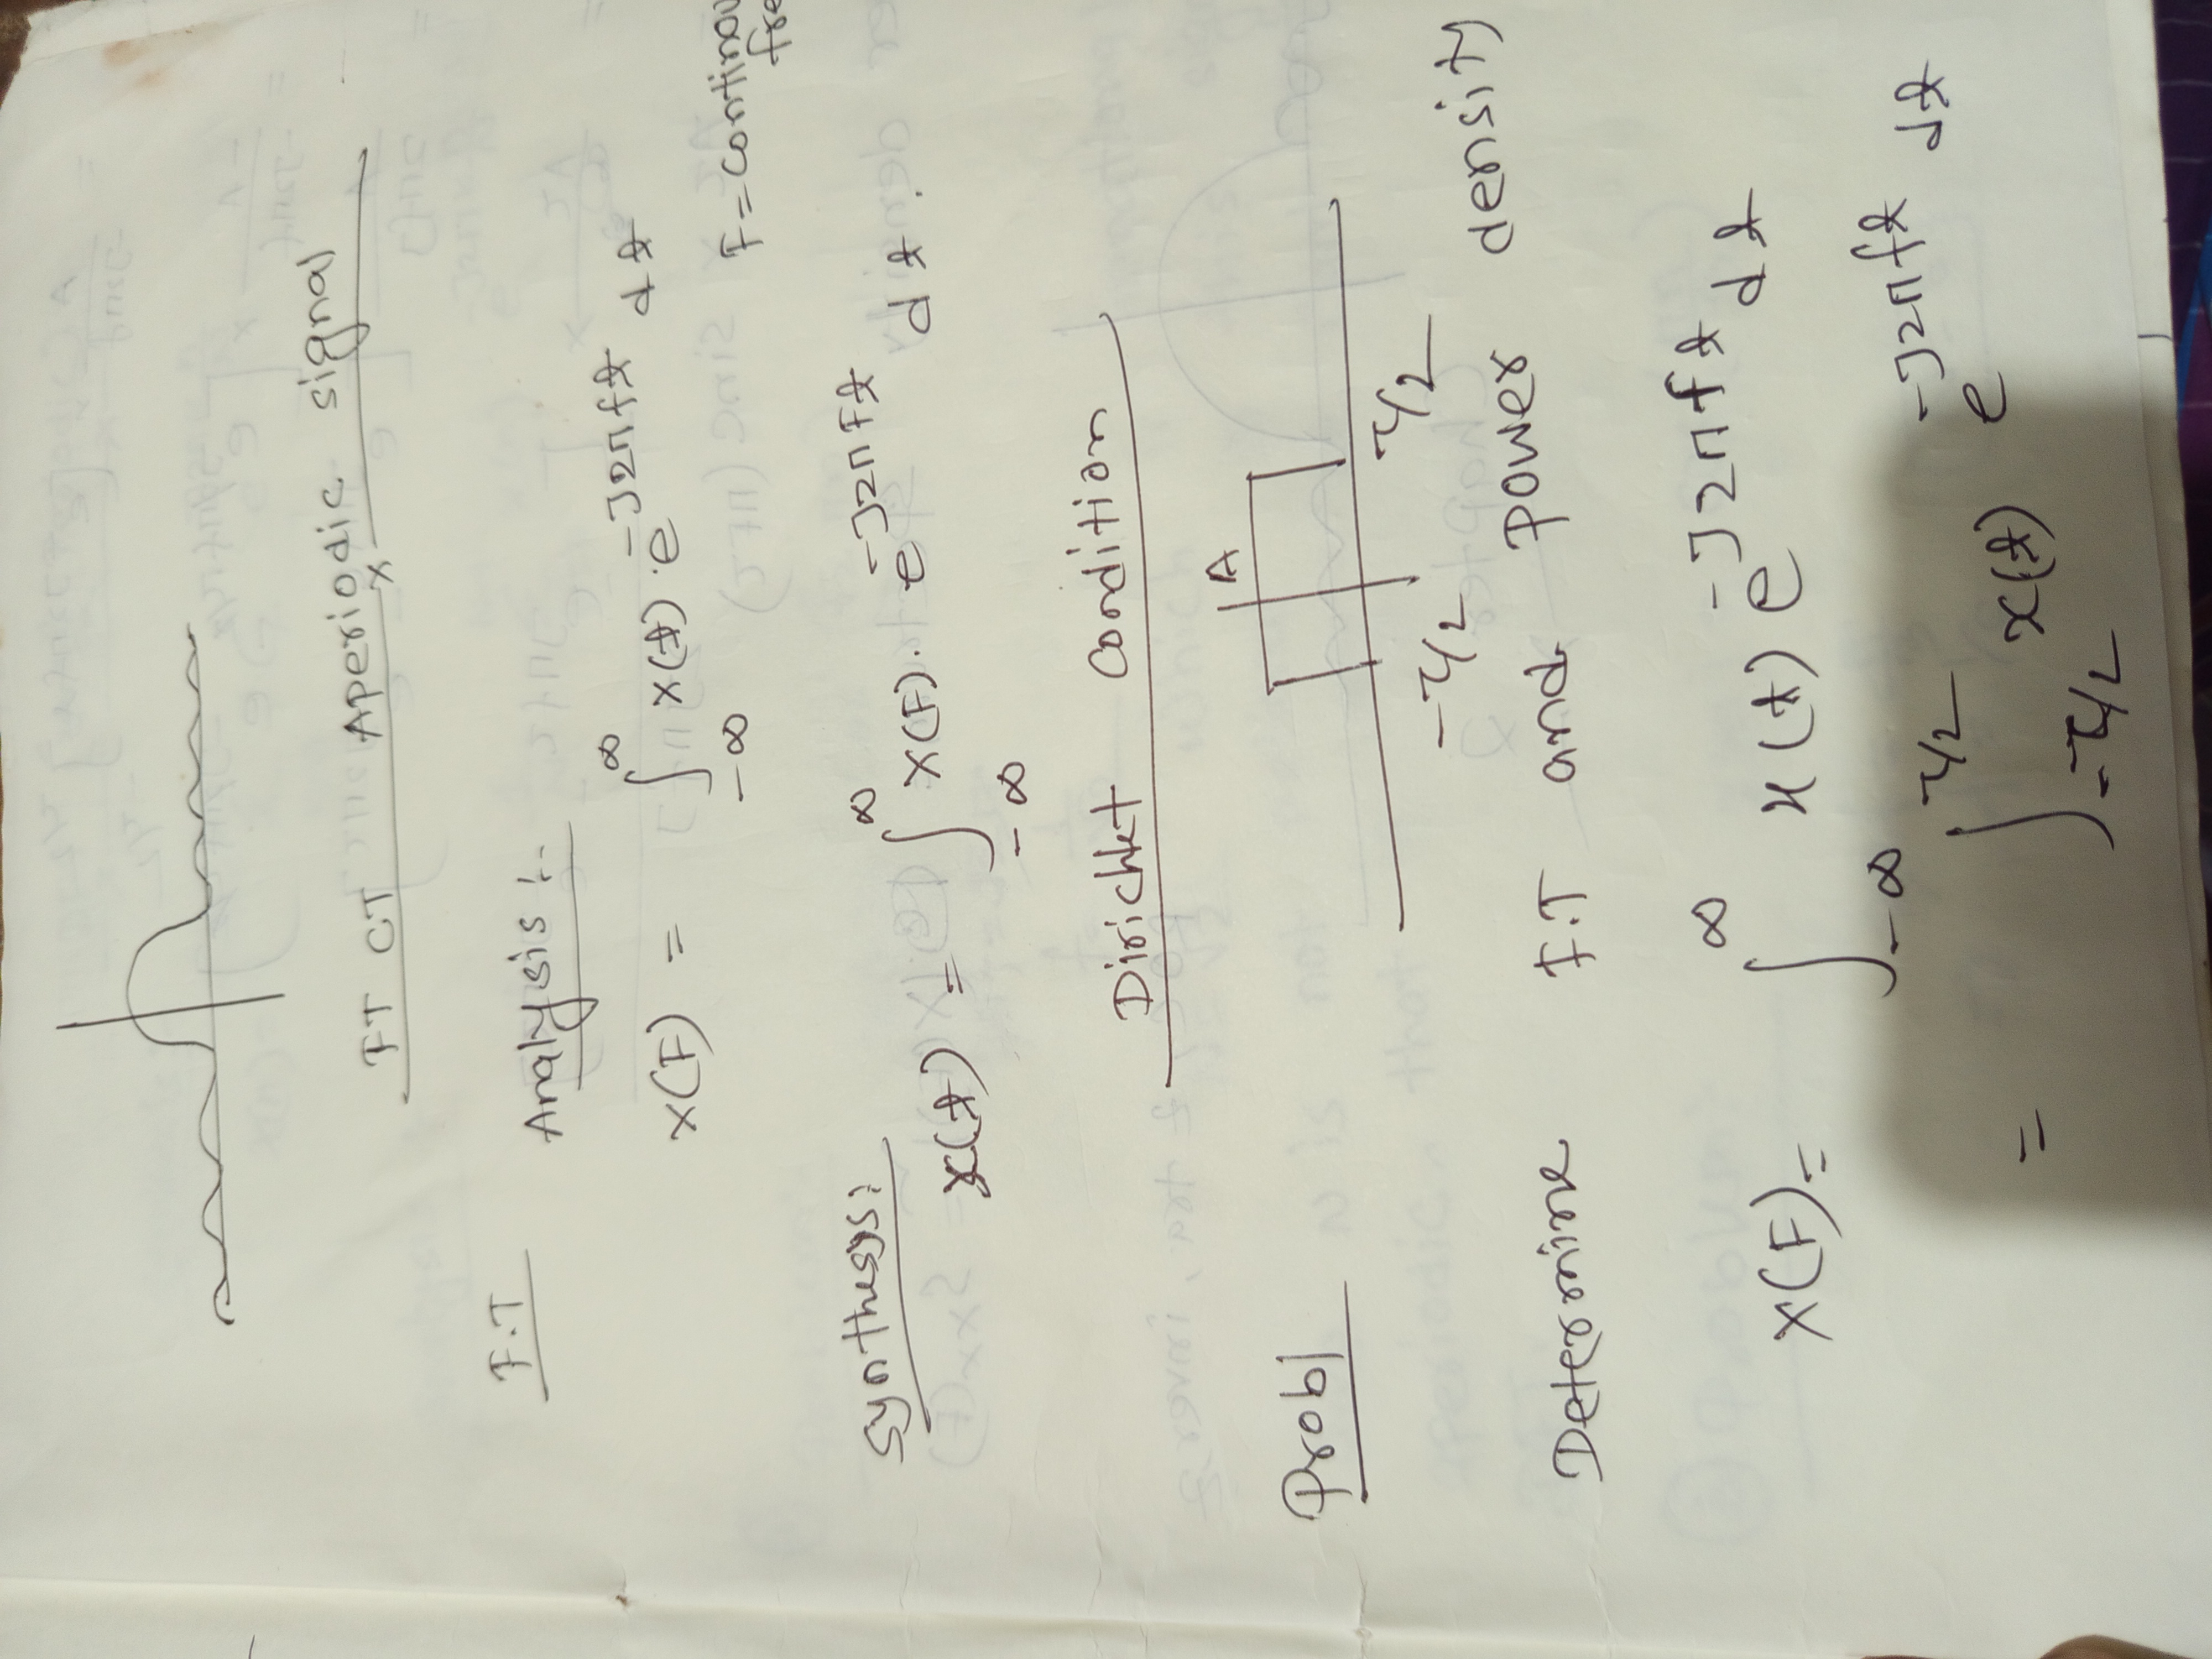 FT CT Aperiodic signal
x
F.T
Analysis :-
X(F) = ∫_{-∞}^{∞} x(t) · e^{-J2πft} dt
F = continou
fre
Synthesys:
x(t) = ∫_{-∞}^{∞} X(F). e^{-J2πFt} dt.
Dirichlet Condition
A
Probl
-τ/2 τ/2
Determine F.T and power density
X(F) = ∫_{-∞}^{∞} x(t) e^{-J2πft} dt
= ∫_{-τ/2}^{τ/2} x(t) e^{-J2πft} dt